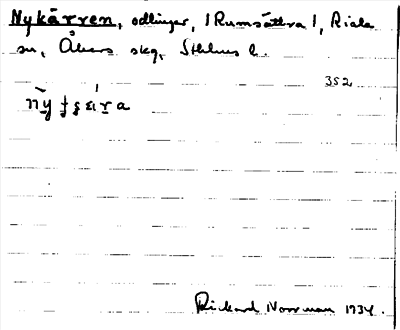 Nykärren, odlingar, /Rumsättra/, Riala
sn, Åkers skg, Sthlms l.
352
Rickard Norrman 1934.